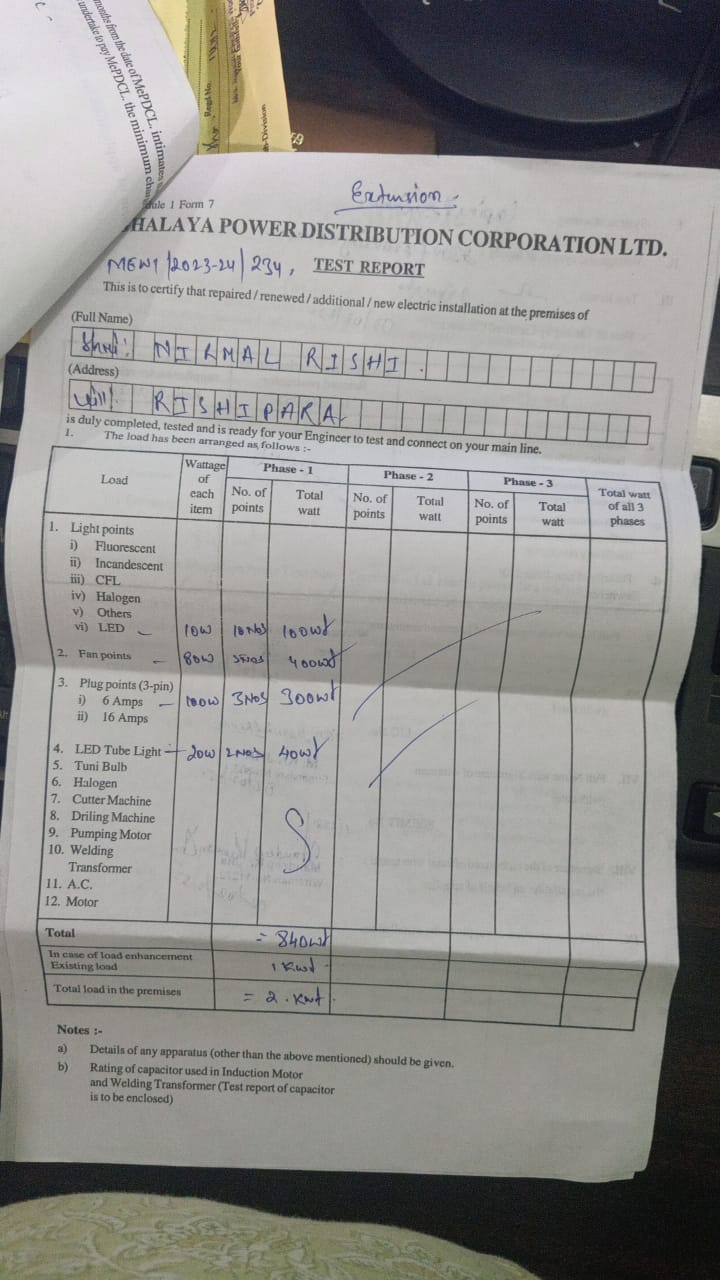 months from the date of MePDCL. intimates
undertake to pay MePDCL. the minimum cha
Regd No.
n-Division
Extension:
dule 1 Form 7
HALAYA POWER DISTRIBUTION CORPORATION LTD.
MEW1/2023-24/234, TEST REPORT
This is to certify that repaired / renewed / additional / new electric installation at the premises of
(Full Name)
Shri: NIRMAL RISHI.
(Address)
Vill: RISHIPARA
is duly completed, tested and is ready for your Engineer to test and connect on your main line.
1. The load has been arranged as follows :-
Load Wattage of each item Phase - 1 No. of points Total watt Phase - 2 No. of points Total watt Phase - 3 No. of points Total watt Total watt of all 3 phases
1. Light points
i) Fluorescent
ii) Incandescent
iii) CFL
iv) Halogen
v) Others
vi) LED - 10W 10Nos 100wt
2. Fan points - 80W 5Nos 400wt
3. Plug points (3-pin)
i) 6 Amps - 100W 3Nos 300wt
ii) 16 Amps
4. LED Tube Light - 20W 2Nos 40wt
5. Tuni Bulb
6. Halogen
7. Cutter Machine
8. Driling Machine
9. Pumping Motor
10. Welding
Transformer
11. A.C.
12. Motor
Total = 840wt
In case of load enhancement
Existing load 1 Kwt
Total load in the premises = 2.Kwt
Notes :-
a) Details of any apparatus (other than the above mentioned) should be given.
b) Rating of capacitor used in Induction Motor
and Welding Transformer (Test report of capacitor
is to be enclosed)